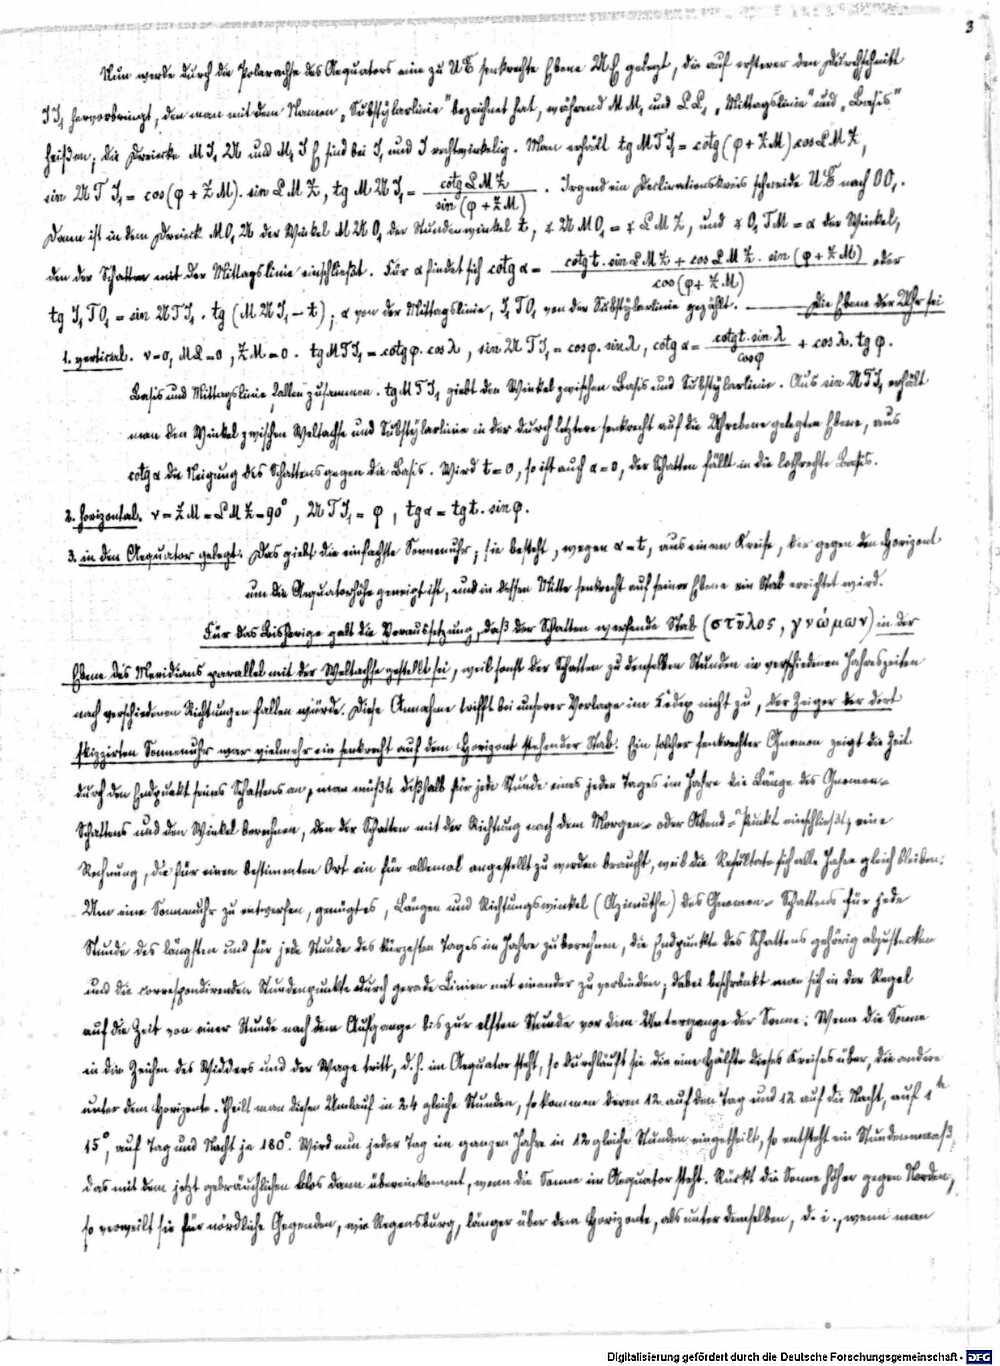 3
Nun werde durch die Polarachse des Aequators eine zu U senkrechte Ebene gelegt, die auf ersterer den Durchschnitt
J J₁ hervorbringt, den man mit dem Namen „Substylarlinie" bezeichnet hat, während M M₁ und L L₁ „Mittagslinie" und „Basis"
heißen; die Dreiecke M J₁ und M₁ J sind bei J₁ und J rechtwinkelig. Man erhält tg M T J₁ = cotg (φ + Z M) cos L M Z,
sin T J₁ = cos (φ + Z M). sin L M Z, tg M J₁ = cotg L M Z / sin (φ + Z M). Irgend ein Declinationskreis schneide nach O O₁.
Dann ist in dem Dreieck M O₁ der Winkel M O₁ der Stundenwinkel t, ∢ M O₁ = ∢ L M Z, und ∢ O₁ T M = α der Winkel,
den der Schatten mit der Mittagslinie einschließt. Für α findet sich cotg α = cotg t. sin L M Z + cos L M Z. sin (φ + Z M) / cos (φ + Z M) oder
tg J₁ T O₁ = sin T J₁. tg (M J₁ – t); α von der Mittagslinie, J₁ T O₁ von der Substylarlinie gezählt. — Die Ebene der Uhr sei
1. vertical. v = 0, M L = 0, Z M = 0. tg M T J₁ = cotg φ. cos λ, sin T J₁ = cos φ. sin λ, cotg α = cotg t. sin λ / cos φ + cos λ. tg φ.
Basis und Mittagslinie fallen zusammen. tg M T J₁ giebt den Winkel zwischen Basis und Substylarlinie. Aus sin T J₁ erhält
man den Winkel zwischen Weltachse und Substylarlinie in der durch letztere senkrecht auf die Uhrebene gelegten Ebene, aus
cotg α die Neigung des Schattens gegen die Basis. Wird t = 0, so ist auch α = 0, der Schatten fällt in die lothrechte Basis.
2. horizontal. v = Z M = L M Z = 90°, T J₁ = φ, tg α = tg t. sin φ.
3. in den Aequator gelegt. Das giebt die einfachste Sonnenuhr; sie besteht, wegen α = t, aus einem Kreise, der gegen den Horizont
um die Aequatorhöhe geneigt ist, und in dessen Mitte senkrecht auf seiner Ebene ein Stab errichtet wird.
Für das Bisherige galt die Voraussetzung, daß der Schatten werfende Stab (στῦλος, γνώμων) in der
Ebene des Meridians parallel mit der Weltachse gestellt sei, weil sonst der Schatten zu denselben Stunden in verschiedenen Jahreszeiten
nach verschiedenen Richtungen fallen würde. Diese Annahme trifft bei unserer Vorlage im Codex nicht zu, der Zeiger der dort
skizzirten Sonnenuhr war vielmehr ein senkrecht auf dem Horizont stehender Stab. Ein solcher senkrechter Gnomon zeigt die Zeit
durch den Endpunkt seines Schattens an, man müßte deßhalb für jede Stunde eines jeden Tages im Jahre die Länge des Gnomon-
Schattens und den Winkel berechnen, den der Schatten mit der Richtung nach dem Morgen- oder Abend-Punkt einschließt, eine
Rechnung, die für einen bestimmten Ort ein für allemal angestellt zu werden braucht, weil die Resultate sich alle Jahre gleich bleiben.
Um eine Sonnenuhr zu entwerfen, genügt es, Längen und Richtungswinkel (Azimuthe) des Gnomon-Schattens für jede
Stunde des längsten und für jede Stunde des kürzesten Tages im Jahre zu berechnen, die Endpunkte des Schattens gehörig abzustecken
und die correspondirenden Stundenpunkte durch gerade Linien mit einander zu verbinden; dabei beschränkt man sich in der Regel
auf die Zeit von einer Stunde nach dem Aufgange bis zur elften Stunde vor dem Untergange der Sonne. Wenn die Sonne
in die Zeichen des Widders und der Wage tritt, d. h. im Aequator steht, so durchläuft sie die eine Hälfte dieses Kreises über, die andere
unter dem Horizonte. Theilt man diesen Umlauf in 24 gleiche Stunden, so kommen deren 12 auf den Tag und 12 auf die Nacht, auf 1ʰ
15°, auf Tag und Nacht je 180°. Wird nun jeder Tag im ganzen Jahre in 12 gleiche Stunden eingetheilt, so entsteht ein Stundenmaß,
das mit dem jetzt gebräuchlichen blos dann übereinkommt, wenn die Sonne im Aequator steht. Rückt die Sonne höher gegen Norden,
so verweilt sie für nördliche Gegenden, wie Regensburg, länger über dem Horizonte, als unter demselben, d. i., wenn man
Digitalisierung gefördert durch die Deutsche Forschungsgemeinschaft - DFG